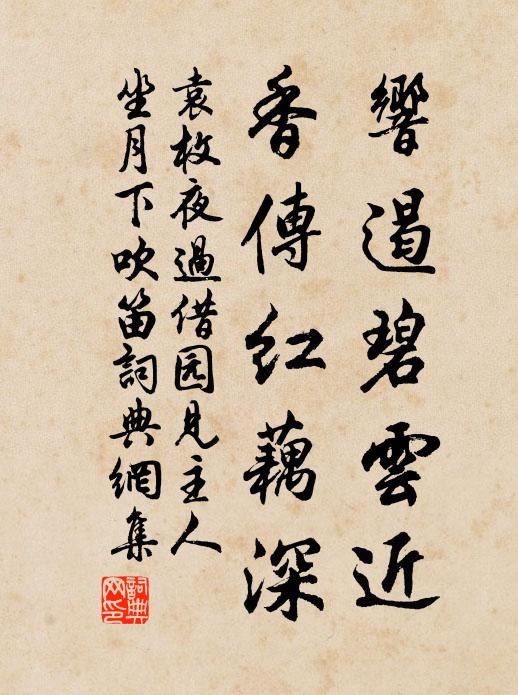 響遏碧雲近
香傳紅藕深
袁枚夜過借园見主人
坐月下吹笛詞典網集
詞典網印